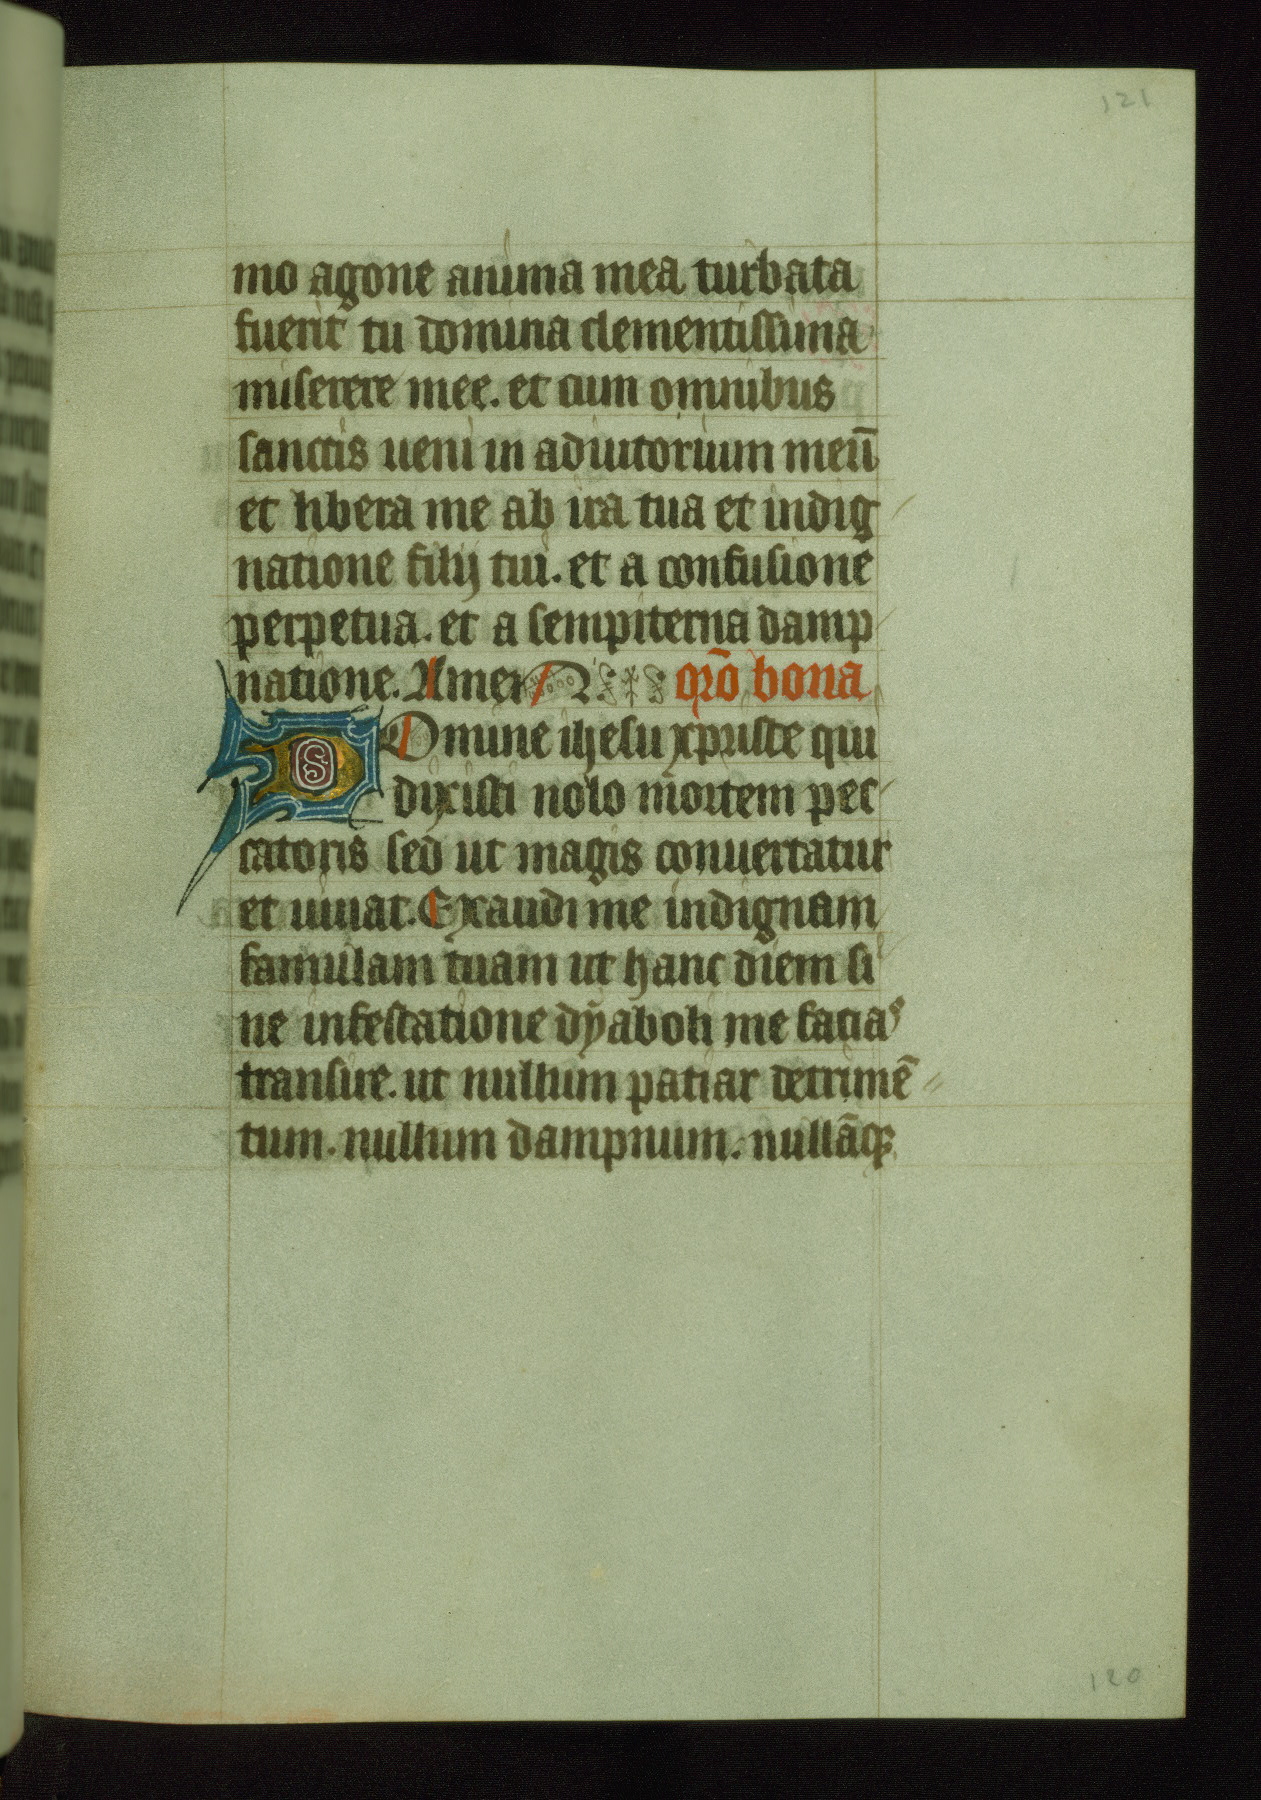 121
mo agone anima mea turbata
fuerit tu domina clementissima
miserere mee. et cum omnibus
sanctis ueni in adiutorium meū
et libera me ab ira tua et indig
natione filij tui. et a confusione
perpetua. et a sempiterna damp
natione. Amen or̄o bona
Domine ihesu xp̄riste qui
dixisti nolo mortem pec
catoris sed ut magis conuertatur
et uiuat. Exaudi me indignam
famulam tuam ut hanc diem si
ne infestatione dyaboli me facias
transire. ut nullum patiar detrimē
tum. nullum dampnum. nullāqꝫ
120